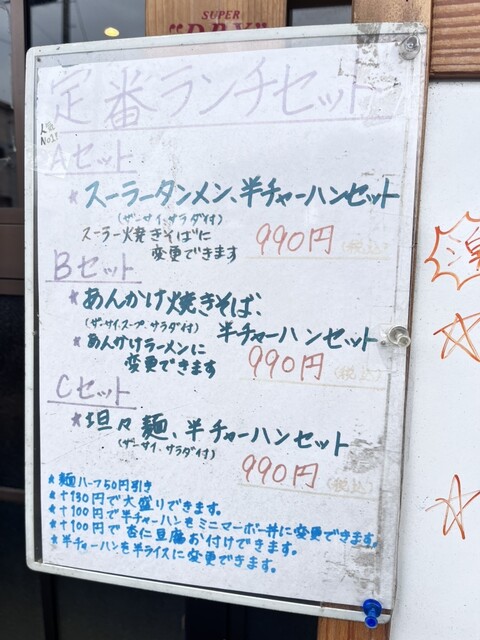 SUPER
"DRY"
定番ランチセット
人気
No.1!!
Aセット
★スーラータンメン、半チャーハンセット
(ザーサイ、サラダ付)
スーラー焼きそばに
変更できます
990円(税込)
Bセット
★あんかけ焼きそば、
(ザーサイ、スープ、サラダ付)
半チャーハンセット
★あんかけラーメンに
変更できます
990円(税込)
Cセット
★坦々麺、半チャーハンセット
(ザーサイ、サラダ付)
990円(税込)
★麺ハーフ50円引き
★+130円で大盛りできます。
★+100円で半チャーハンをミニマーボー丼に変更できます。
★+100円で杏仁豆腐お付けできます。
★半チャーハンを半ライスに変更できます。